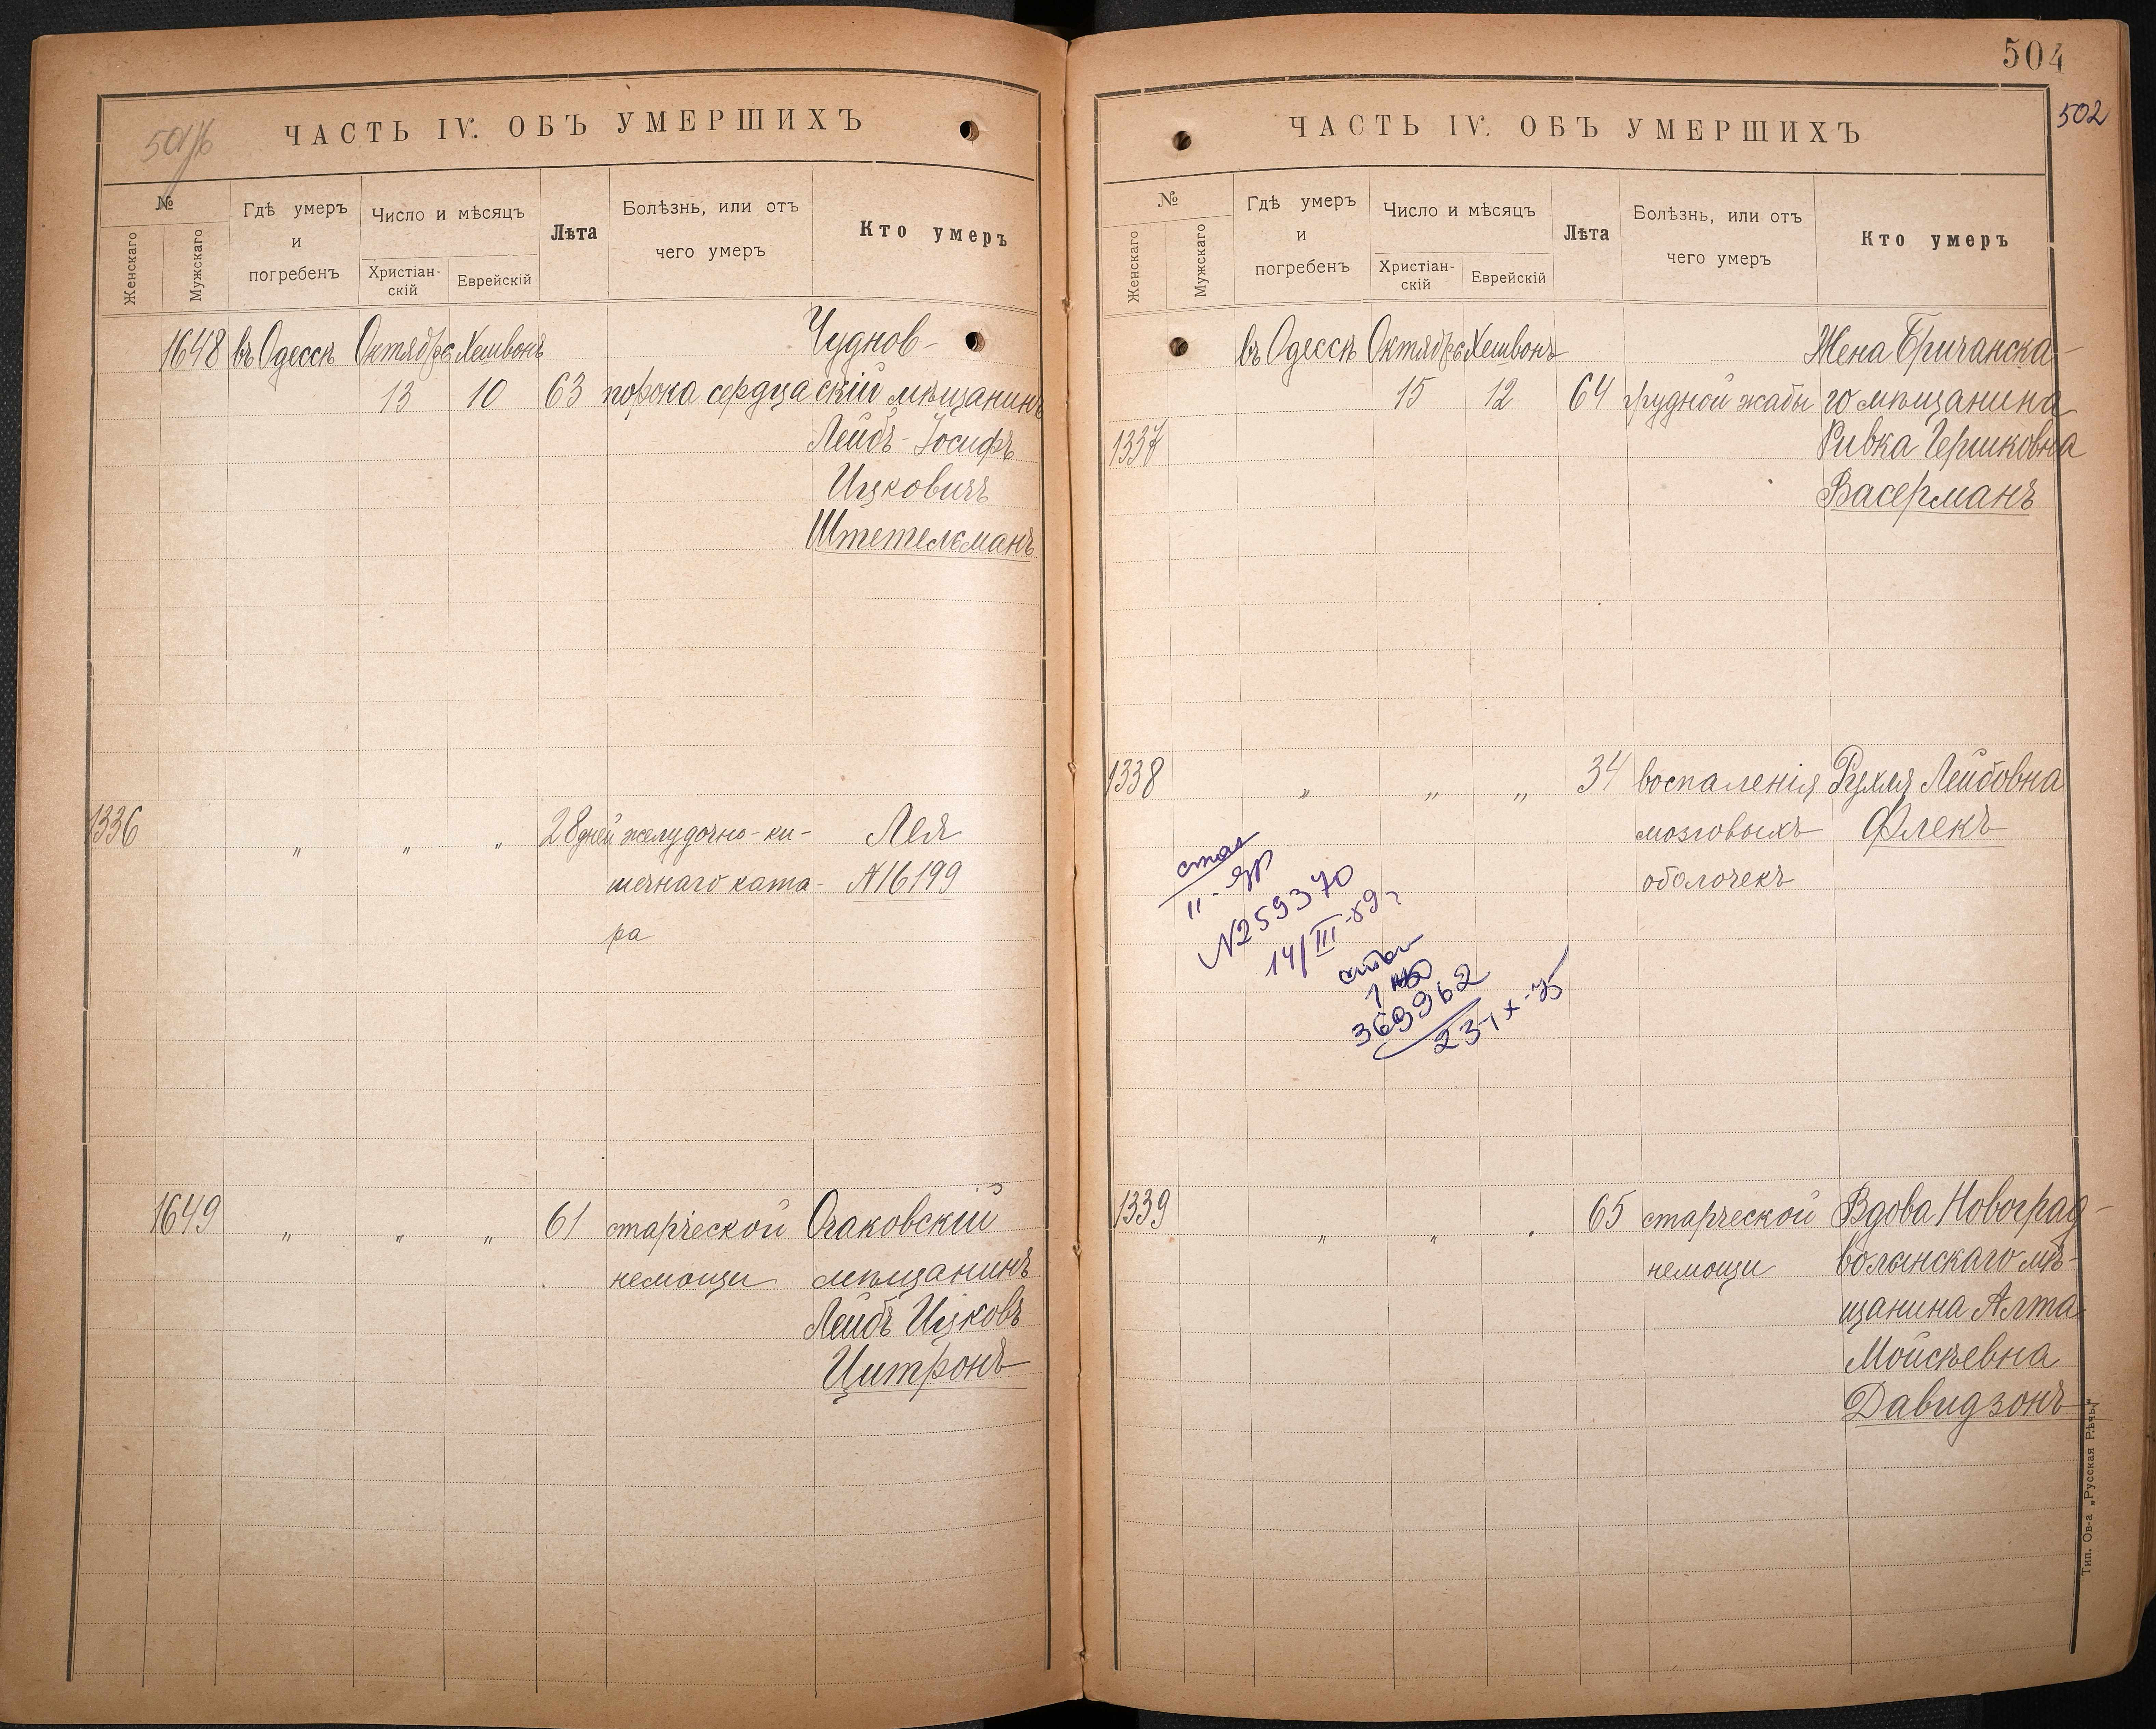 501/б
ЧАСТЬ IV. ОБЪ УМЕРШИХЪ
№
Женскаго
Мужскаго
Гдѣ умеръ
и
погребенъ
Число и мѣсяцъ
Христіан-
скій
Еврейскій
Лѣта
Болѣзнь, или отъ
чего умеръ
Кто умеръ
1648 въ Одессѣ Октября Хешвонъ Чуднов-
13 10 63 порока сердца скій мѣщанинъ
Лейбъ-Іосифъ
Ицковичъ
Штетельманъ
1336 " " " 28 дней желудочно-ки- Лея
шечнаго ката- №16199
ра
1649 " " " 61 старческой Очаковскій
немощи мѣщанинъ
Лейбъ Ицковъ
Цитронъ
504
502
ЧАСТЬ IV. ОБЪ УМЕРШИХЪ
№
Женскаго
Мужскаго
Гдѣ умеръ
и
погребенъ
Число и мѣсяцъ
Христіан-
скій
Еврейскій
Лѣта
Болѣзнь, или отъ
чего умеръ
Кто умеръ
въ Одессѣ Октября Хешвонъ Жена Бричанска-
15 12 64 грудной жабы го мѣщанина
1337 Ривка Гершковна
Васерманъ
1338 " " " 34 воспаленія Рухля Лейбовна
мозговыхъ Флекъ
оболочекъ
№259370
14/III-89г
369962
23-X-75
1339 " " " 65 старческой Вдова Новоград-
немощи волынскаго мѣ-
щанина Алта
Мойсѣевна
Давидзонъ
Тип. Ов-а „Русская Рѣчь"